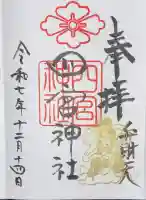 奉拝
弁財天
四宮神社
令和七年十二月十四日